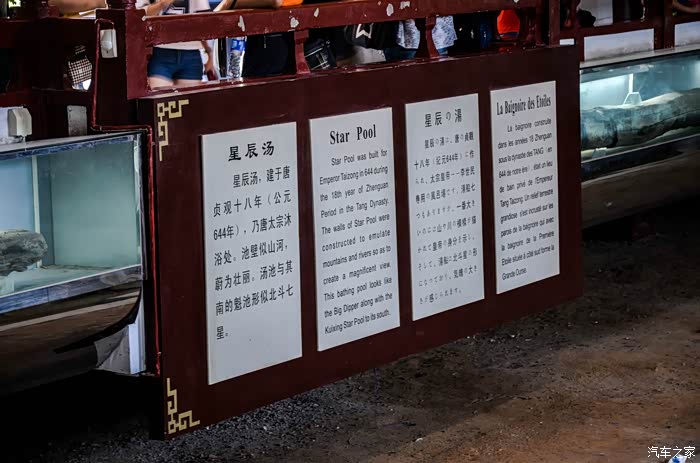 星辰汤
星辰汤，建于唐
贞观十八年（公元
644年），乃唐太宗沐
浴处。池壁似山河，
蔚为壮丽。汤池与其
南的魁池形似北斗七
星。
Star Pool
Star Pool was built for
Emperor Taizong in 644 during
the 18th year of Zhenguan
Period in the Tang Dynasty.
The walls of Star Pool were
constructed to emulate
mountains and rivers so as to
create a magnificent view.
This bathing pool looks like
the Big Dipper along with the
Kuixing Star Pool to its south.
星辰の湯
星辰の湯は、唐の貞観
十八年（紀元644年）に作
られ、太宗皇帝——李世民
専用の風呂場です。湯船七
つもありますが、一番大き
いのには山や川の模様が描
かれて皇帝の身分を示し、
そして、湯船は北斗星の形
になっており、気魄の大き
さが感じられます。
La Baignoire des Etoiles
La baignoire construite
dans les années 18 Zhenguan
sous la dynastie des TANG (en
644 de notre ère) était un lieu
de bain privé de l'Empereur
Tang Taizong. Un relief terrestre
grandiose s'est incrusté sur les
parois de la baignoire qui avec
la baignoire de la Première
Etoile située à côté sud forme la
Grande Ourse.
汽车之家